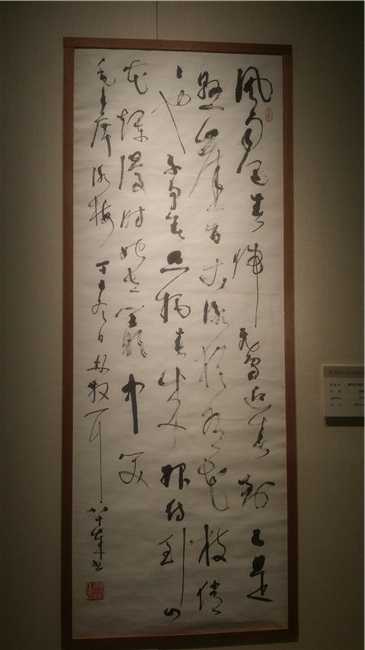 风雨送春归飞雪迎春到已是
悬崖百丈冰犹有花枝俏
也不争春只把春来报待到山
花烂漫时她在丛中笑
毛主席咏梅 冬日